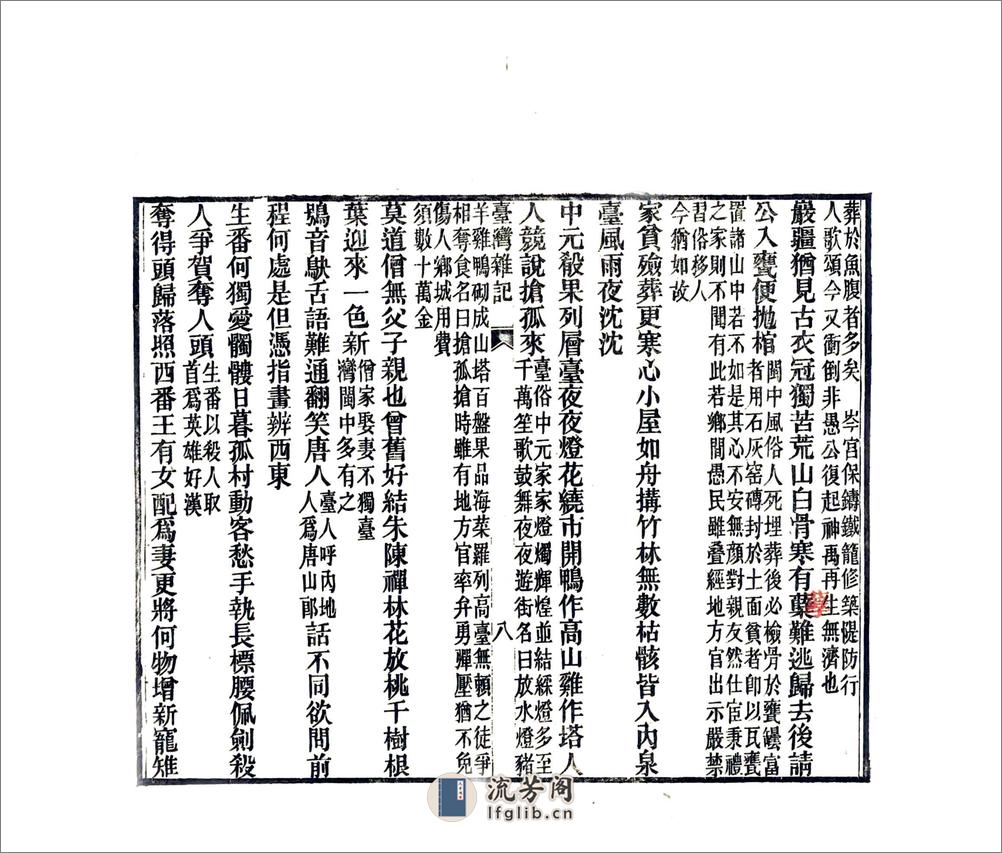 葬於魚腹者多矣　岑宮保鑄鐵籠修築隄防行
人歌頌今又衝倒非愚公復起神禹再生無濟也
嚴疆猶見古衣冠獨苦荒山白骨寒有蘖難逃歸去後請
公入甕便拋棺
閩中風俗人死埋葬後必檢骨於甕罍富
者用石灰窑磚封於土面貧者卽以瓦甕
置諸山中若不如是其心不安無顏對親友然仕宦秉禮
之家則不聞有此若鄉間愚民雖疊經地方官出示嚴禁
習俗移人
今猶如故
家貧殮葬更寒心小屋如舟搆竹林無數枯骸皆入內泉
臺風雨夜沈沈
中元殽果列層臺夜夜燈花繞市開鴨作高山雞作塔人
人競說搶孤來
臺俗中元家家燈燭輝煌並結綵燈多至
千萬笙歌鼓舞夜夜遊街名曰放水燈豬
臺灣雜記　八
羊雞鴨砌成山塔百盤果品海菜羅列高臺無賴之徒爭
相奪食名曰搶孤搶時雖有地方官率弁勇彈壓猶不免
傷人鄉城用費
須數十萬金
莫道僧無父子親也曾舊好結朱陳禪林花放桃千樹根
葉迎來一色新
僧家娶妻不獨臺
灣閩中多有之
鴞音鴃舌語難通翻笑唐人
臺人呼內地
人爲唐山郎
話不同欲問前
程何處是但憑指畫辨西東
生番何獨愛髑髏日暮孤村動客愁手執長標腰佩劍殺
人爭賀奪人頭
生番以殺人取
首爲英雄好漢
奪得頭歸落照西番王有女配爲妻更將何物增新寵雉
流芳阁
lfglib.cn